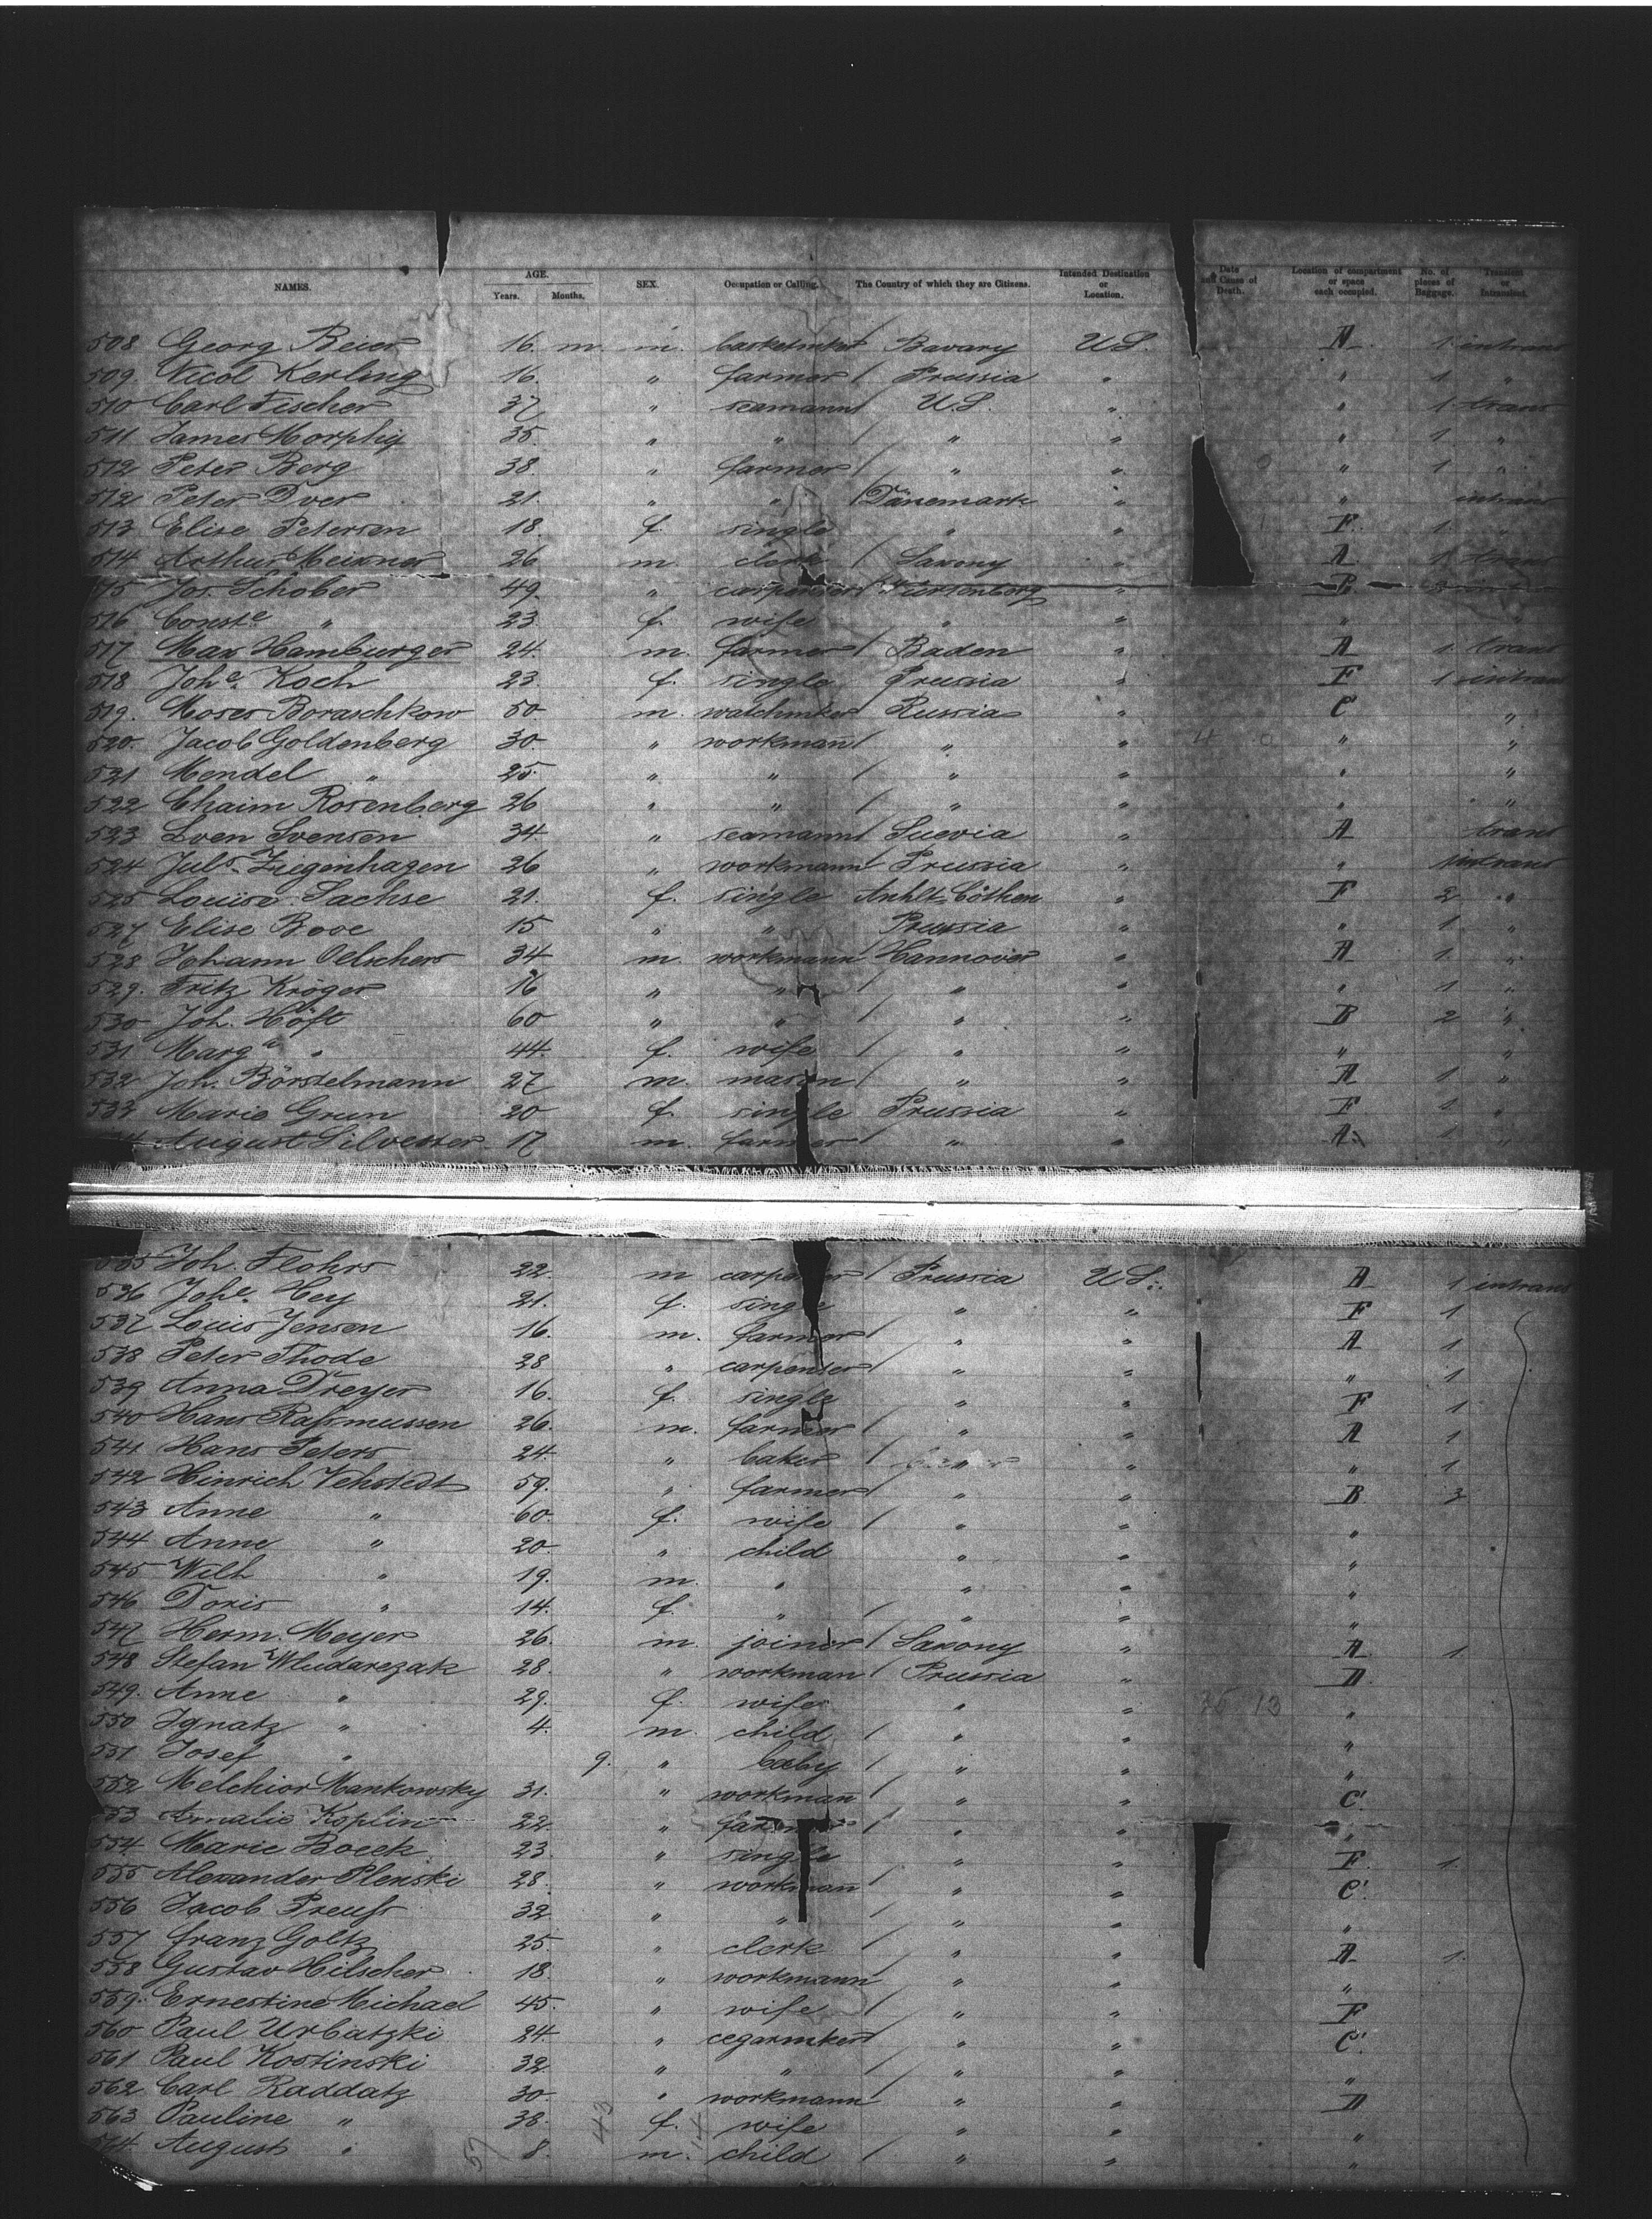 NAMES. AGE. Years. Months. SEX. Occupation or Calling. The Country of which they are Citizens. Intended Destination or Location. Date and Cause of Death. Location of compartment or space each occupied. No. of pieces of Baggage. Transient or Intransient.
508 Georg Beier 16. m. m. basketmker / Bavary U.S. A 1 intrans
509. Nicol Kerling 16. " farmer / Prussia " " 1 "
510 Carl Fischer 37 " seamann / U.S. " " 1 trans
511 James Morphy 35. " " / " " " 1 "
512 Peter Berg 38. " farmer / " " " 1 "
512 Peter Dver 21. " " / Dänemark " " intrans
513 Elise Petersen 18. f. single " " F. 1 "
514 Arthur Meixner 26 m. clerk / Saxony " A 1 trans
515 Jos. Schober 49. " carpenter / Würtenberg " B
516 Conste " 23. f. wife " " "
517 Max Hamburger 24. m. farmer / Baden " A 1. trans
518 Johe. Koch 23. f. single Prussia " F 1 intrans
519. Moses Boraschkow 50 m. watchmker Russia " C "
520. Jacob Goldenberg 30. " workmann / " " " "
521 Mendel " 25. " " / " " " "
522 Chaim Rosenberg 26 " " / " " " "
523 Sven Svensen 34 " seamann / Suevia " A trans
524 Juls. Ziegenhagen 26 " workmann / Prussia " " intrans
525 Louise Sachse 21. f. single Anhlt. Cöthen " F 2 "
527 Elise Booe 15 " " Prussia " " 1. "
528 Johann Oelschers 34 m. workmann Hannover " A 1. "
529. Fritz Kröger 16 " " / " " " 1 "
530 Joh. Höft 60 " " " " B 2 "
531 Marga " 44. f. wife / " " " "
532 Joh. Börstelmann 27 m. mason / " " A 1 "
533 Marie Grun 20 f. single Prussia " F 1 "
August Silvester 17 m. farmer / " " A. 1 "
535 Joh. Flohrs 22. m carpenter / Prussia U.S. A 1 intrans
536 Johe. Hey 21. f. single " " F 1
537 Louis Jensen 16. m. farmer / " " A 1
538 Peter Thode 28 " carpenter / " " " 1
539 Anna Dreyer 16. f. single " " F 1
540 Hans Rassmussen 26. m. farmer / " " A 1
541 Hans Peters 24. " baker / " " 1
542 Hinrich Vehstedt 59. " farmer / " " B 3
543 Anne " 60. f. wife / " " "
544 Anne " 20. " child " " "
545 Wilh " 19. m. " " " "
546 Doris " 14. f. " / " " "
547 Herm. Meyer 26. m. joiner / Saxony " A 1.
548 Stefan Wludarczak 28. " workman / Prussia " D
549. Anne " 29. f. wife " " 35 13 "
550 Ignatz " 4. m. child / " " "
551 Josef " 9. " baby / " " "
552 Melchior Mankowsky 31. " workmann / " " C.
553 Amalie Koplin 22. " farmer / " " "
554 Marie Boeck 23 " single " " F. 1.
555 Alexander Plenski 28. " workmann / " " C.
556 Jacob Preuss 32. " " / " " "
557 Franz Goltz 25. " clerk / " " A 1.
558 Gustav Hilscher 18. " workmann / " " "
559. Ernestine Michael 45. " wife / " " F
560 Paul Urbatzki 24. " cegarmker / " " C.
561 Paul Kostinski 32. " " / " " "
562 Carl Raddatz 30. " workmann / " " D
563 Pauline " 38. f. wife " " "
564. August " 8. m. child / " " "
57 43 14